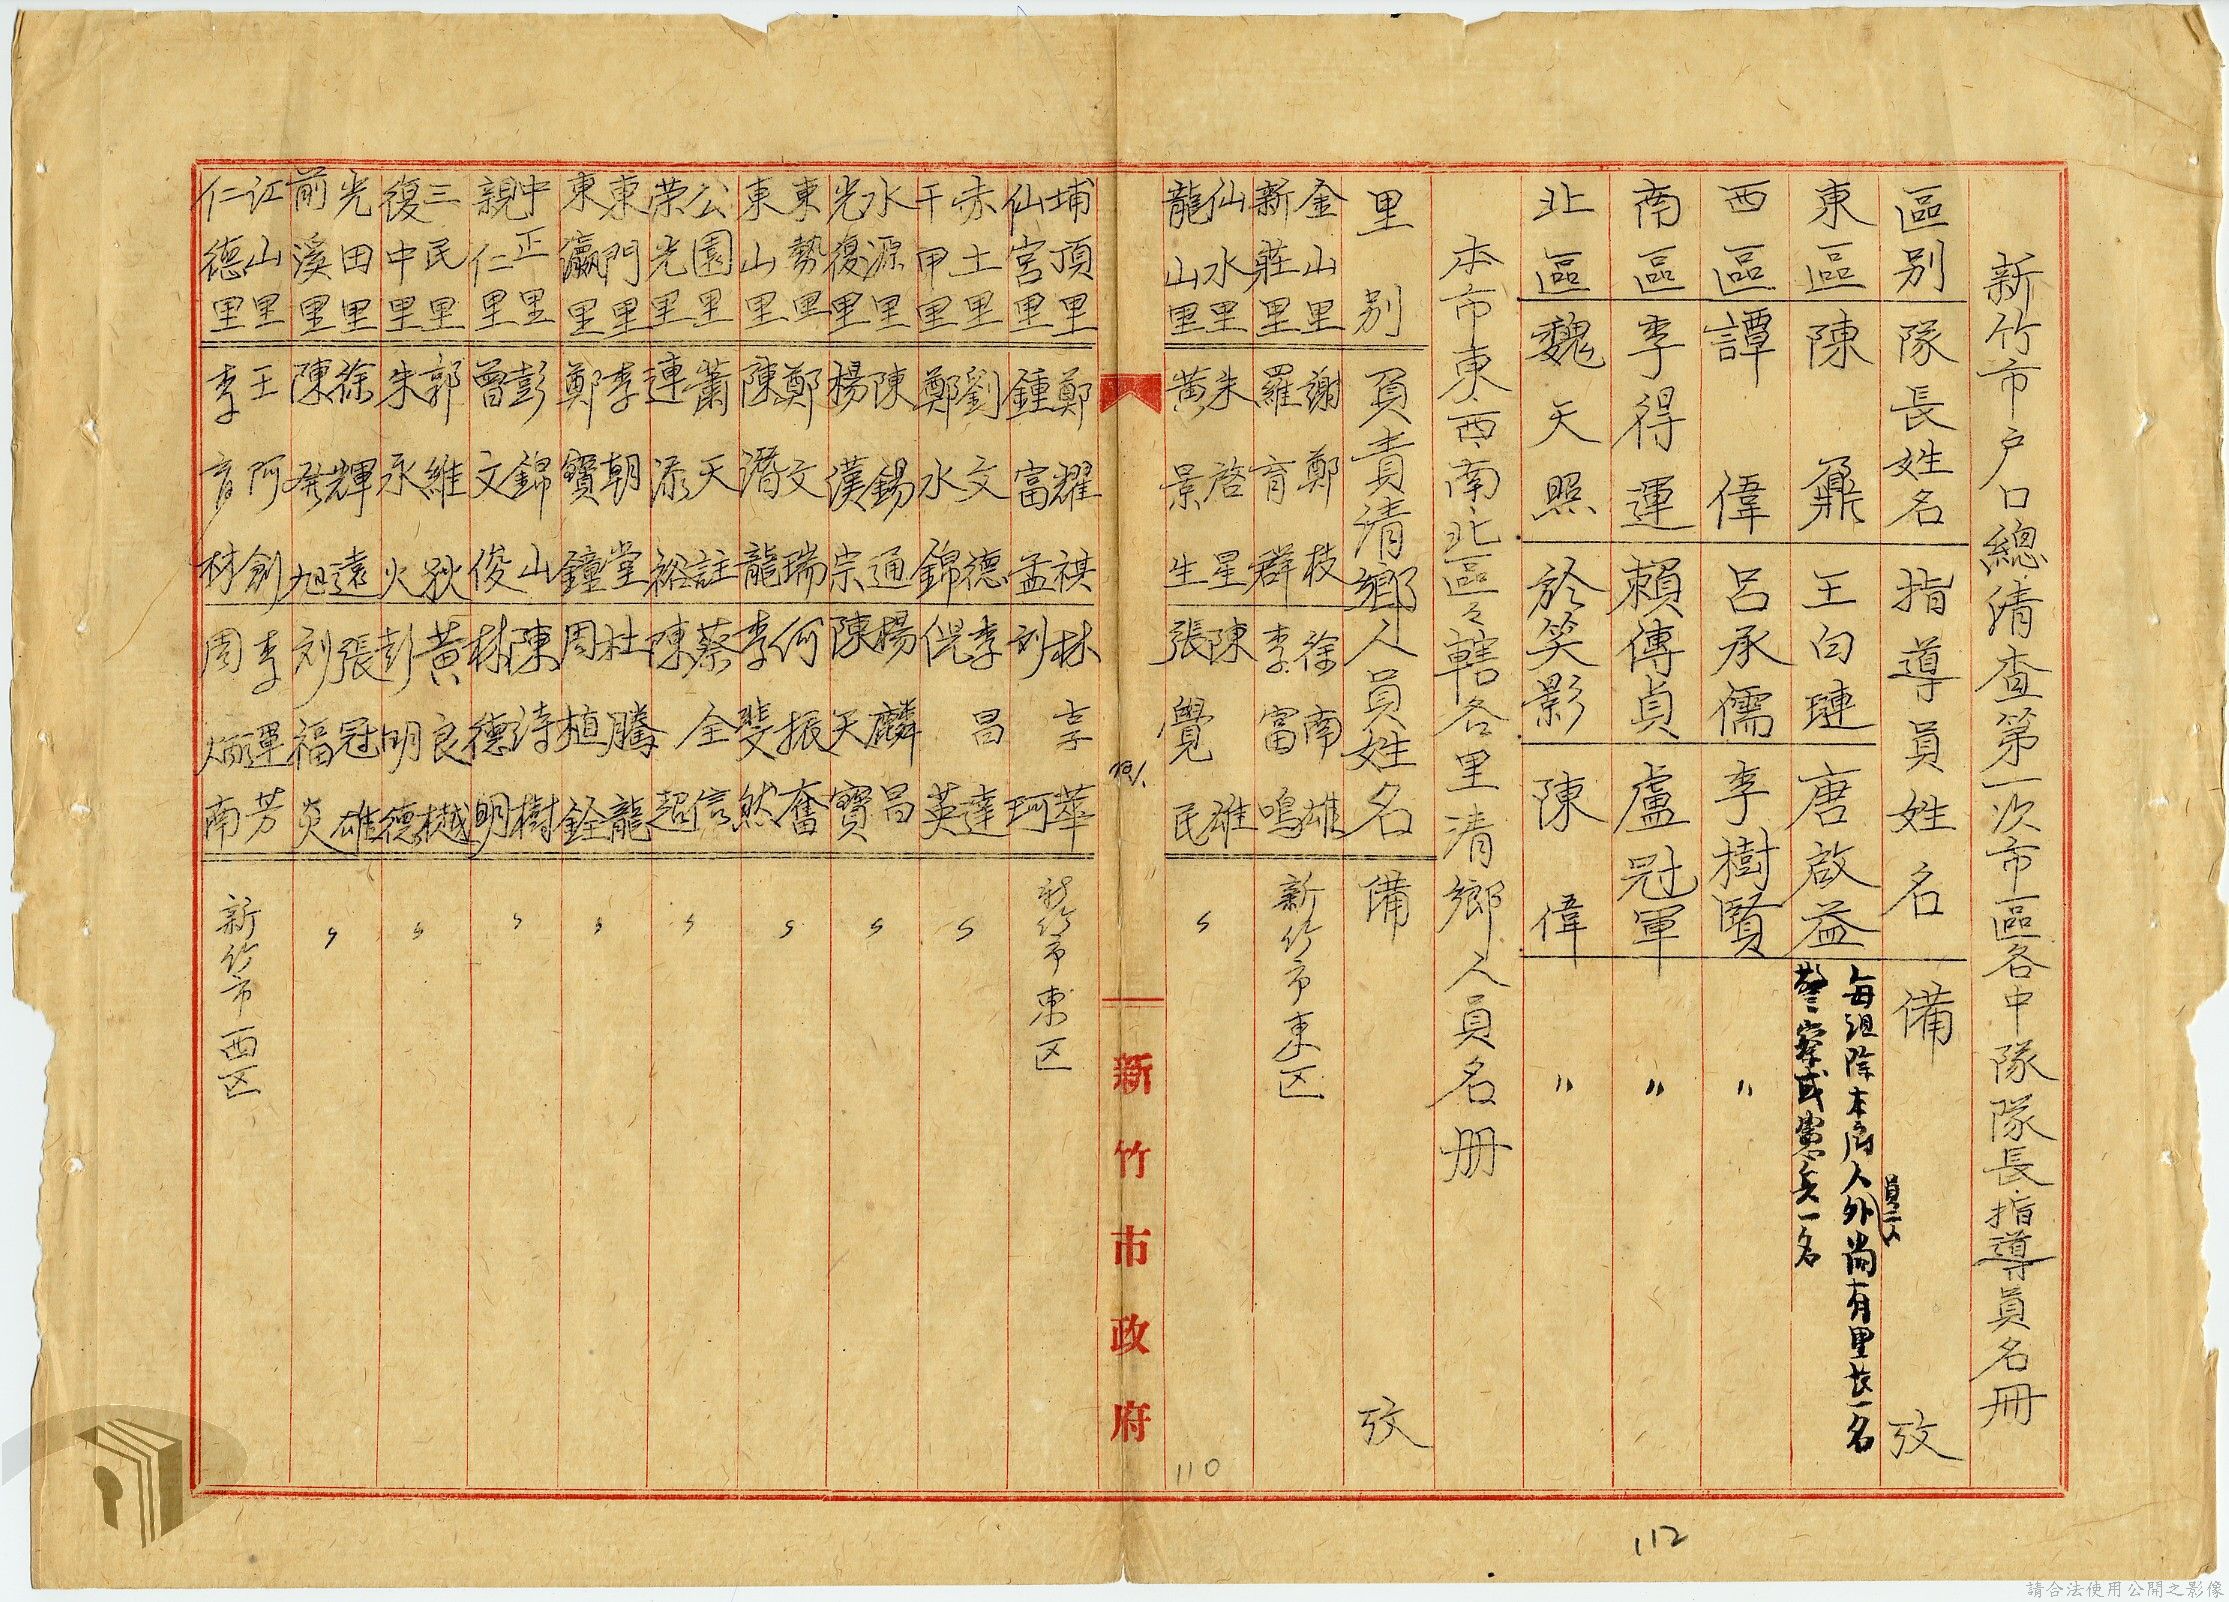 新竹市户口總清查第一次市區各中隊隊長指導員名冊
區别 隊長姓名 指導員姓名 備 攷
東區 陳鼐 王白璉 唐啟益 每組除本府人員二人外尚有里長一名
警察或憲兵一名
西區 譚偉 呂承儒 李樹賢 〃
南區 李得運 賴傳貞 盧冠軍 〃
北區 魏天照 於笑影 陳偉 〃
本市東西南北區々轄各里清鄉人員名册
里别 負責清鄉人員姓名 備 攷
金山里 謝鄭枝 徐南雄 新竹市東区
新莊里 羅育群 李富鳴
仙水里 朱啓星 陳雄 〃
龍山里 黃景生 張覺民
新竹市政府
埔頂里 鄭耀祺 林享華 新竹市東区
仙宮里 鍾富孟 刘珂
赤土里 劉文德 李昌達 〃
千甲里 鄭水錦 倪英
水源里 陳錫通 楊麟昌 〃
光復里 楊漢宗 陳天寶
東勢里 鄭文瑞 何振奮 〃
東山里 陳潛龍 李斐然
公園里 蕭天註 蔡全信 〃
荣光里 連添裕 陳超
東門里 李朝堂 杜騰龍 〃
東瀛里 鄭寶鐘 周植銓
中正里 彭錦山 陳詩樹 〃
親仁里 曾文俊 林德明
三民里 郭維 黃良樾 〃
復中里 朱承火 彭明德
光田里 徐輝遠 張冠雄 〃
前溪里 陳發旭 刘福炎
江山里 王阿創 李輝芳 新竹市西区
仁德里 李育材 周炳南
110
112
請合法使用公開之影像